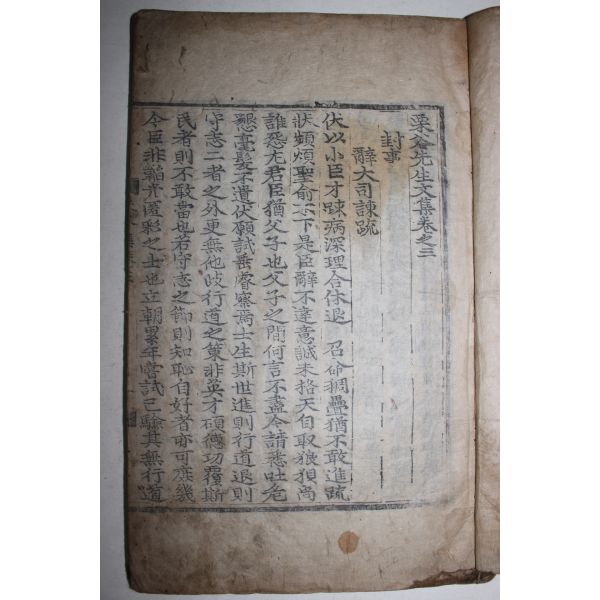 栗谷先生文集卷之三
封事
辭大司諫疏
伏以小臣才踈病深理合休退 召命稠疊猶不敢進疏
狀頻煩聖俞不下是臣辭不達意誠未格天自取狼狽尚
誰怨尤君臣猶父子也父子之間何言不盡今請悉吐危
懇毫髮不遺伏願試垂睿察焉士生斯世進則行道退則
守志二者之外更無他歧行道之策非英才碩德功覆斯
民者則不敢當也若守志之節則知恥自好者亦可庶幾
今臣非韜光匿彩之士也立朝累年嘗試已驗其無行道